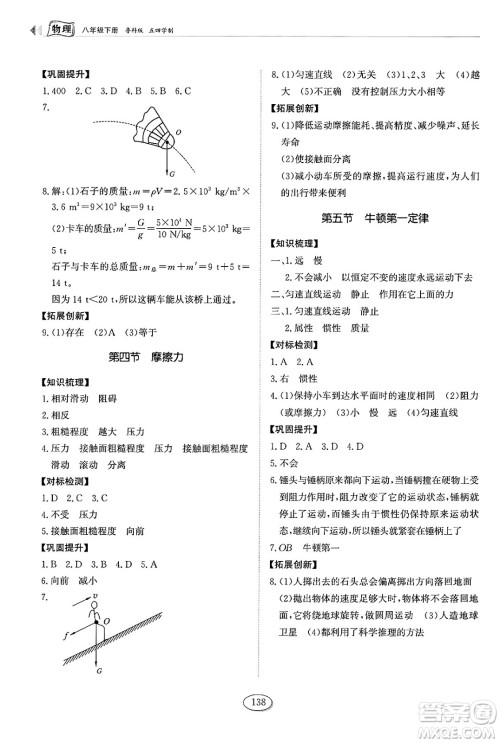 物理 八年级下册 鲁科版 五四学制
【巩固提升】
1.400 2.C 3.C 4.D 5.A 6.D
7.
O
G
8.解:(1)石子的质量:m=ρV=2.5×10³ kg/m³×
3.6 m³=9×10³ kg=9 t;
(2)卡车的质量:m′=G/g=5×10⁴ N/10 N/kg=5×10³ kg=
5 t;
石子与卡车的总质量:m总=m+m′=9 t+5 t=
14 t;
因为14 t<20 t,所以这辆车能从该桥上通过。
【拓展创新】
9.(1)存在 (2)A (3)等于
第四节 摩擦力
【知识梳理】
1.相对滑动 阻碍
2.相反
3.粗糙程度 越大 压力
4.压力 接触面粗糙程度 压力 接触面粗糙程度
滑动 滚动 分离
【对标检测】
1.C 2.D 3.A
4.不受 压力
5.接触面粗糙程度 向前
【巩固提升】
1.B 2.C 3.D 4.C 5.D
6.向前 减小
7.
v
f
O
G
8.(1)匀速直线 (2)无关 (3)1.3 变大 变
大 (5)不正确 没有控制压力大小相等
【拓展创新】
9.(1)降低运动摩擦能耗、提高精度、减少噪声、延长
寿命
(2)使接触面分离
(3)减小动车所受的摩擦,提高了运行速度,给人
们出行带来便利
第五节 牛顿第一定律
【知识梳理】
一、1.远 慢
2.不会减小 以恒定不变的速度运动下去
二、匀速直线运动 静止 静止 匀速直线运动
三、1.匀速直线运动 静止
2.属性 惯性 惯性
【对标检测】
1.A 2.A
3.右 惯性
4.(1)保持小车到达水平面时的速度相同 (2)阻力
(或摩擦力) (3)小 慢 远 (4)匀速直线
【巩固提升】
1.D 2.A 3.D 4.D
5.不会
6.锤头与锤柄原来一起向下运动,当锤柄撞在硬物上
时,锤柄由运动变为静止,改变了运动状态,锤头由
于惯性仍要保持原来的运动状态,继续向下运动,
这样锤头就紧套在锤柄上了。
7.OB 牛顿第一
【拓展创新】
8.(1)人掷出去的石头偏离掷出方向落回地面
(2)抛出物体的速度足够大时,物体不再落回地
面,将绕地球旋转,永远不会落回地面 (3)人造地球
卫星 (4)都利用了科学推理的方法
138